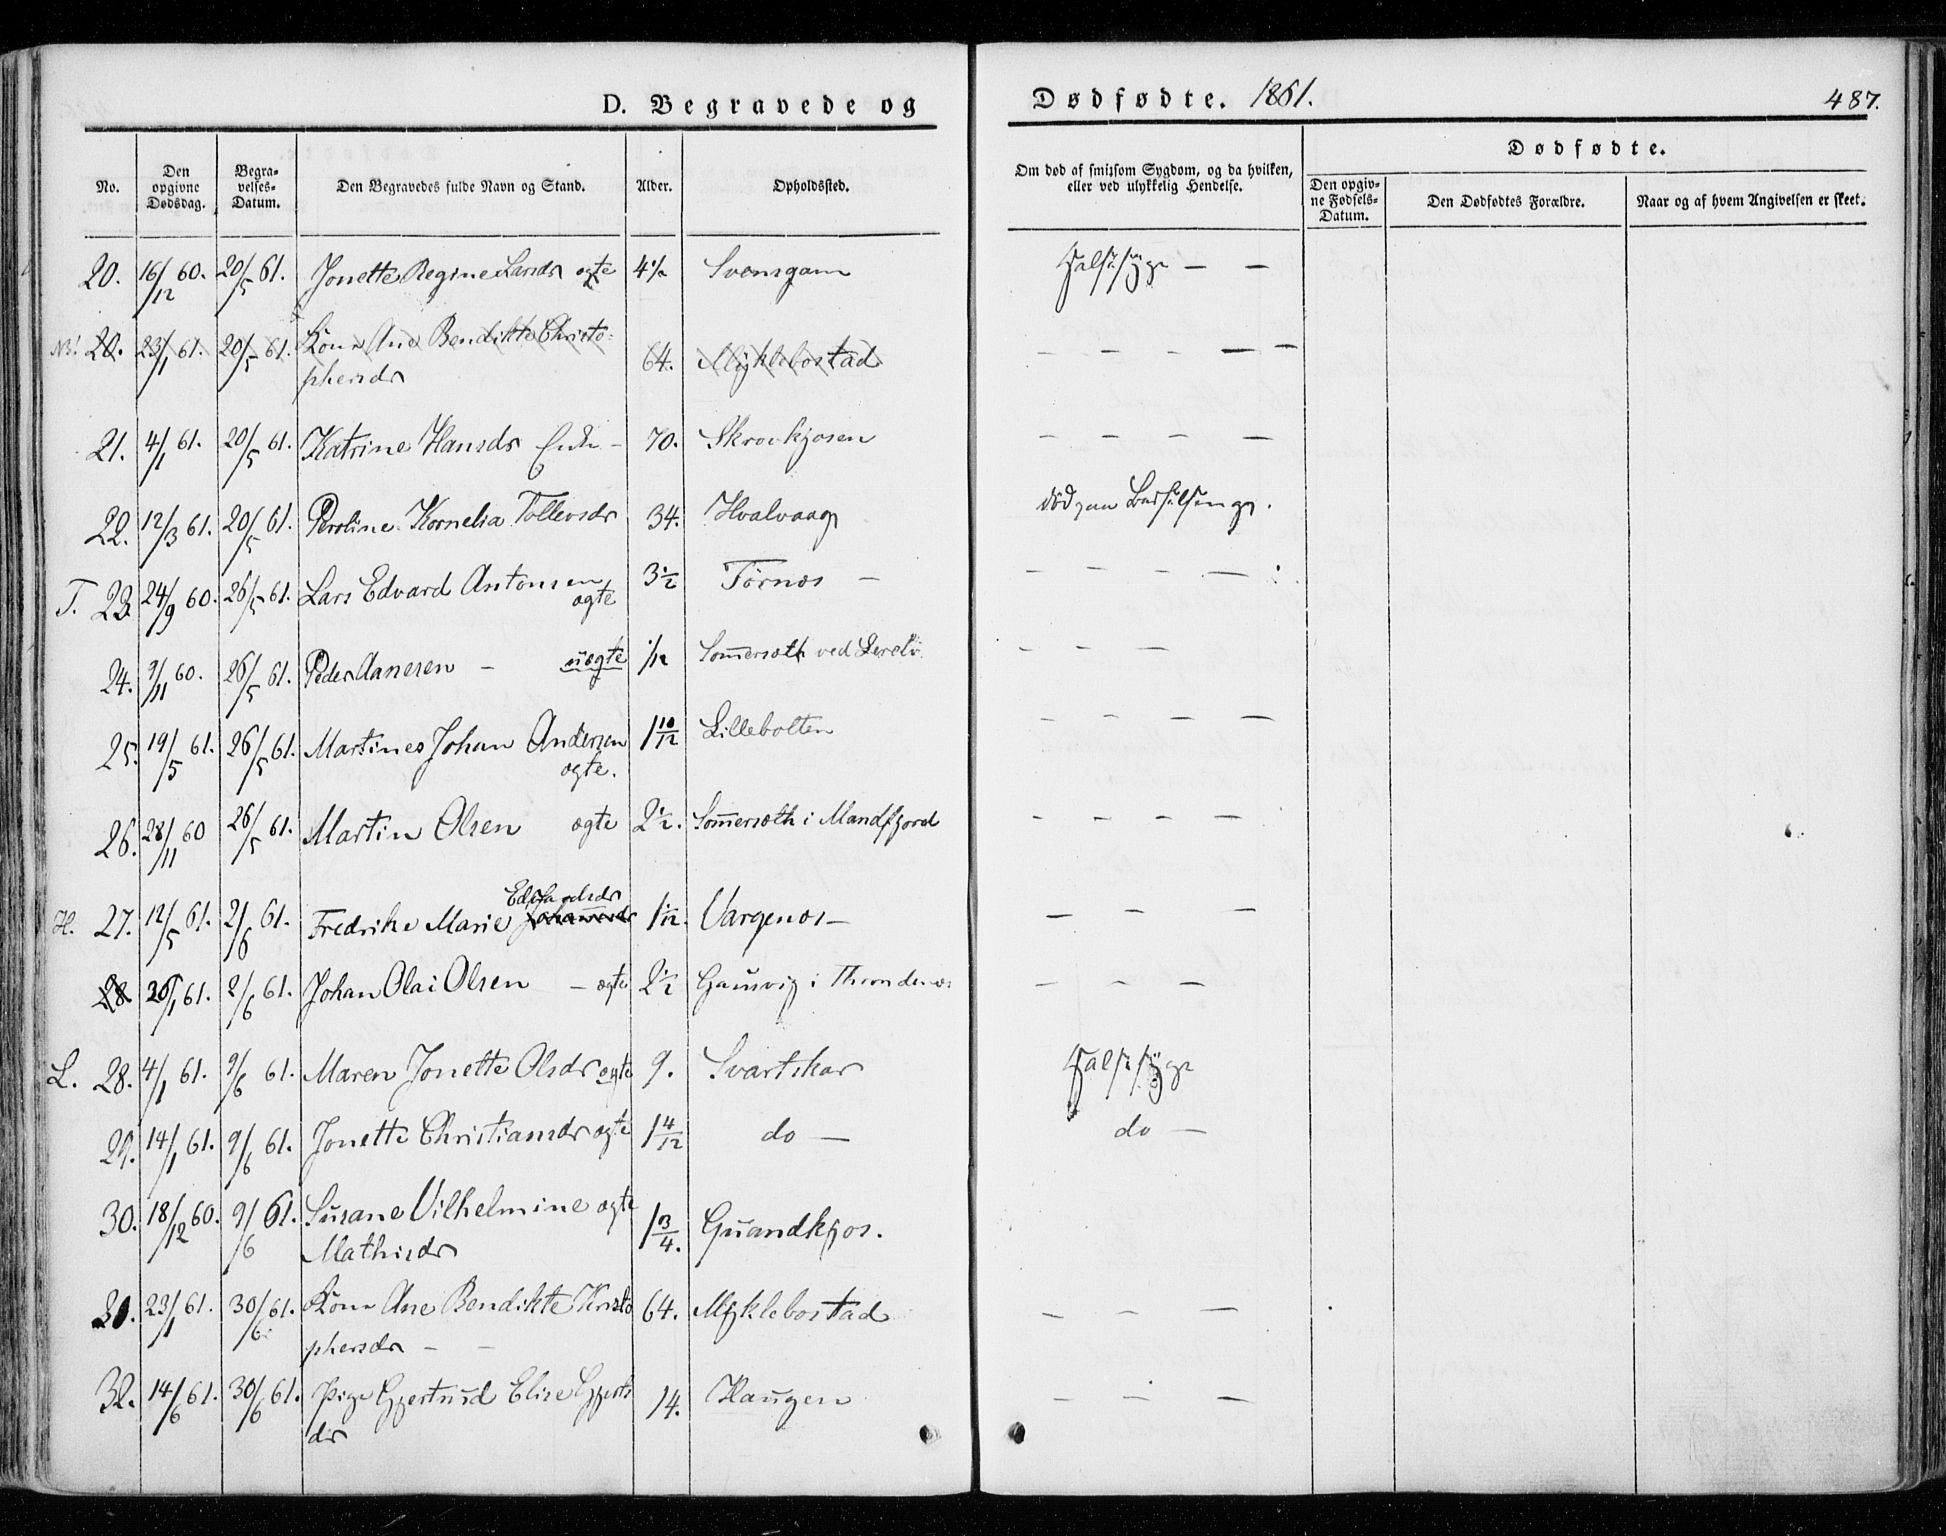 D. Begravede og
Dødfødte. 1861.
487.
No.
Den opgivne Dødsdag.
Begra-velses-Datum.
Den Begravedes fulde Navn og Stand.
Alder.
Opholdssted.
Om død af smitsom Sygdom, og da hvilken, eller ved ulykkelig Hendelse.
Dødfødte.
Den opgiv-ne Fødsels-Datum.
Den Dødfødtes Forældre.
Naar og af hvem Angivelsen er skeet.
20. 16/12 60. 20/5 61. Jonette Regine Larsdr ægte 4½ Svensgam Halssyge — —
NB! 20. 23/1 61. 20/5 61. Kone Ane Bendikte Christo- 64. Myklebostad — — — — —
phersdr
21. 4/1 61. 20/5 61. Katrine Hansdr Enke — 70. Skrovkjosen — — — —
22. 12/3 61. 20/5 61. Peroline Kornelia Tollevsdr 34. Hvalvaag død paa Barselseng.
T. 23. 24/9 60. 26/5 61. Lars Edvard Antonsen 3½ Tørnæs — — — — —
ægte
24. 9/11 60. 26/5 61. Peder Aanesen — uægte 1/12 Sommersæth ved — — —
25. 19/5 61. 26/5 61. Martines Johan Andersen 1 10/12 Lillebolten — — — —
ægte.
26. 28/11 60 26/5 61. Martin Olsen ægte 2½. Sommersæth i Mandfjord — — — —
Edvardsdr
H. 27. 12/5 61. 2/6 61. Fredrike Marie Johannesdr 1 1/12. Vargenæs — — — —
28 26/1 61. 2/6 61. Johan Olai Olsen — ægte 2½ Gausvig i Throndenæs — — —
L. 28. 4/1 61. 9/6 61. Maren Jonette Olsdr ægte 9. Svartskar Halssyge
29. 14/1 61. 9/6 61. Jonette Christiansdr ægte 1 4/12 do — do —
30. 18/12 60. 9/6 61. Susane Vilhelmine ægte 1 3/4. Guandkjos.
Mathisdr
31. 23/1 61. 30/6 61. Kone Ane Bendikte Kristo 64. Myklebostad — — —
phersdr — —
32. 14/6 61. 30/6 61. Pige Gjertrud Elise Gjerts 14. Haugen — — —
dr